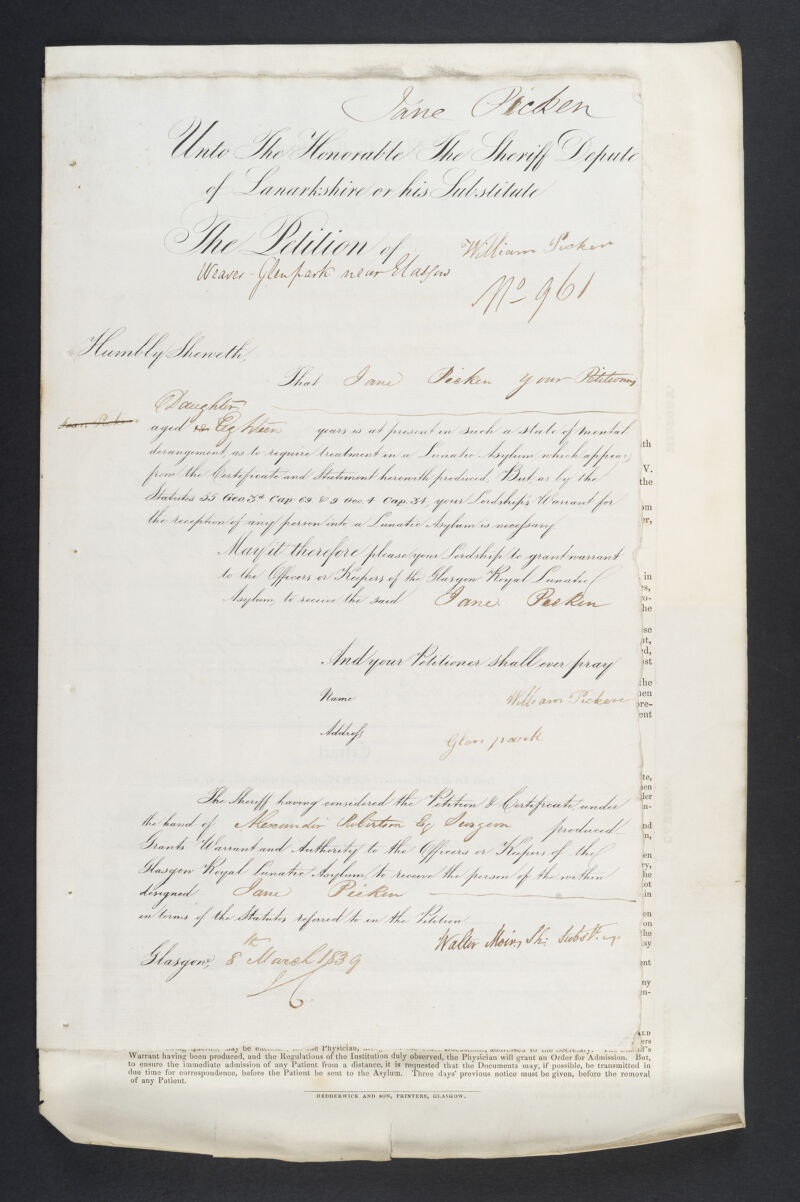 Jane Picken
Unto The Honorable The Sheriff Depute
of Lanarkshire or his Substitute
The Petition of William Picken
Weaver Glenpark near Glasgow
No 961
Humbly Sheweth,
That Jane Picken your Petitioners
Daughter
aged 18 Eighteen years is at present in such a state of mental
derangement as to require treatment in a Lunatic Asylum which appears
from the Certificate and Statement herewith produced, But as by the
Statutes 55 Geo. 3rd Cap. 69 & 9 Geo. 4 Cap. 34, your Lordship's Warrant for
the reception of any person into a Lunatic Asylum is necessary
May it therefore please your Lordship to grant warrant
to the Officers or Keepers of the Glasgow Royal Lunatic
Asylum, to receive the said Jane Picken
And your Petitioner shall ever pray
Name William Picken
Address Glenpark
The Sheriff having considered the Petition & Certificate, under
the hand of Alexander Robertson Esq Surgeon produced
Grants Warrant and Authority to the Officers or Keepers of the
Glasgow Royal Lunatic Asylum, to receive the person of the within
designed Jane Picken
in terms of the Statutes referred to in the Petition
Walter Moir, Sh: Subst.
Glasgow, 8th March 1839
Warrant having been produced, and the Regulations of the Institution duly observed, the Physician will grant an Order for Admission. But,
to ensure the immediate admission of any Patient from a distance, it is requested that the Documents may, if possible, be transmitted in
due time for correspondence, before the Patient be sent to the Asylum. Three days' previous notice must be given, before the removal
of any Patient.
HEDDERWICK AND SON, PRINTERS, GLASGOW.